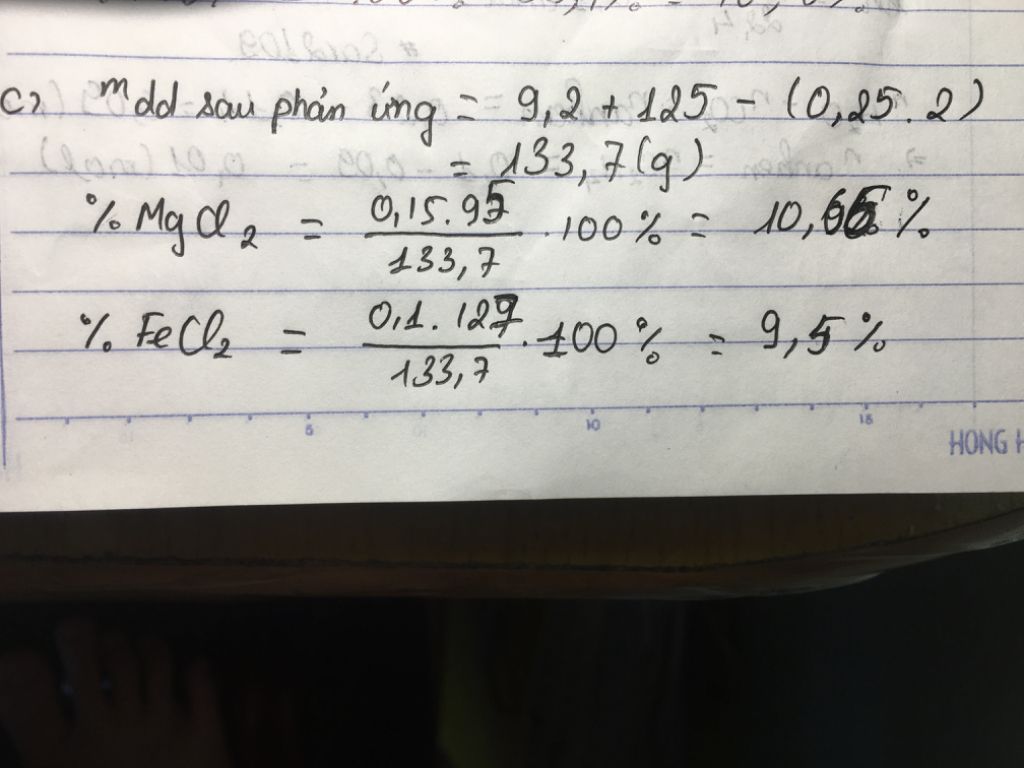 c) m dd sau phản ứng = 9,2 + 125 - (0,25.2)
= 133,7 (g)
% MgCl2 = 0,15.95 / 133,7 . 100% = 10,66%
% FeCl2 = 0,1.127 / 133,7 . 100% = 9,5%
5 10 15
HONG H